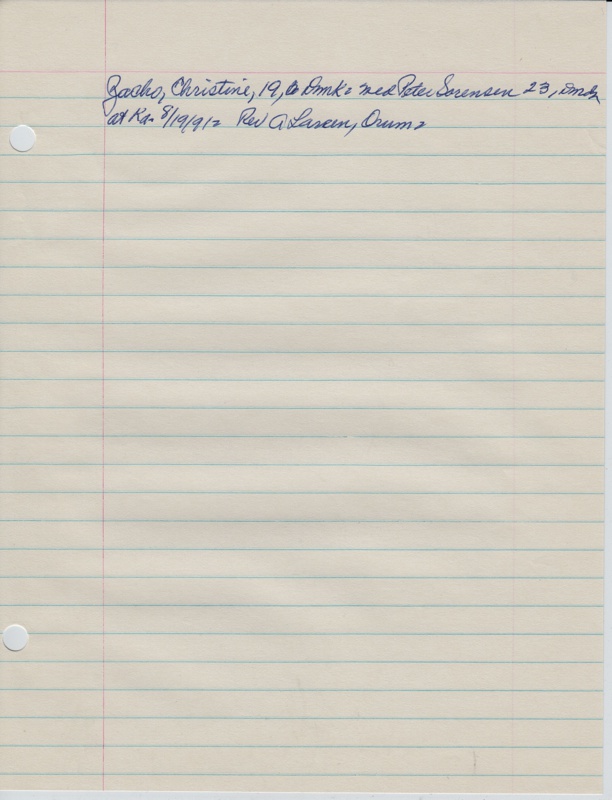 Zacho, Christine, 19, b Dmk: med Peter Sorensen 23, Dmk
at Ka. 8/19/91: Rev A Larsen, Orum: